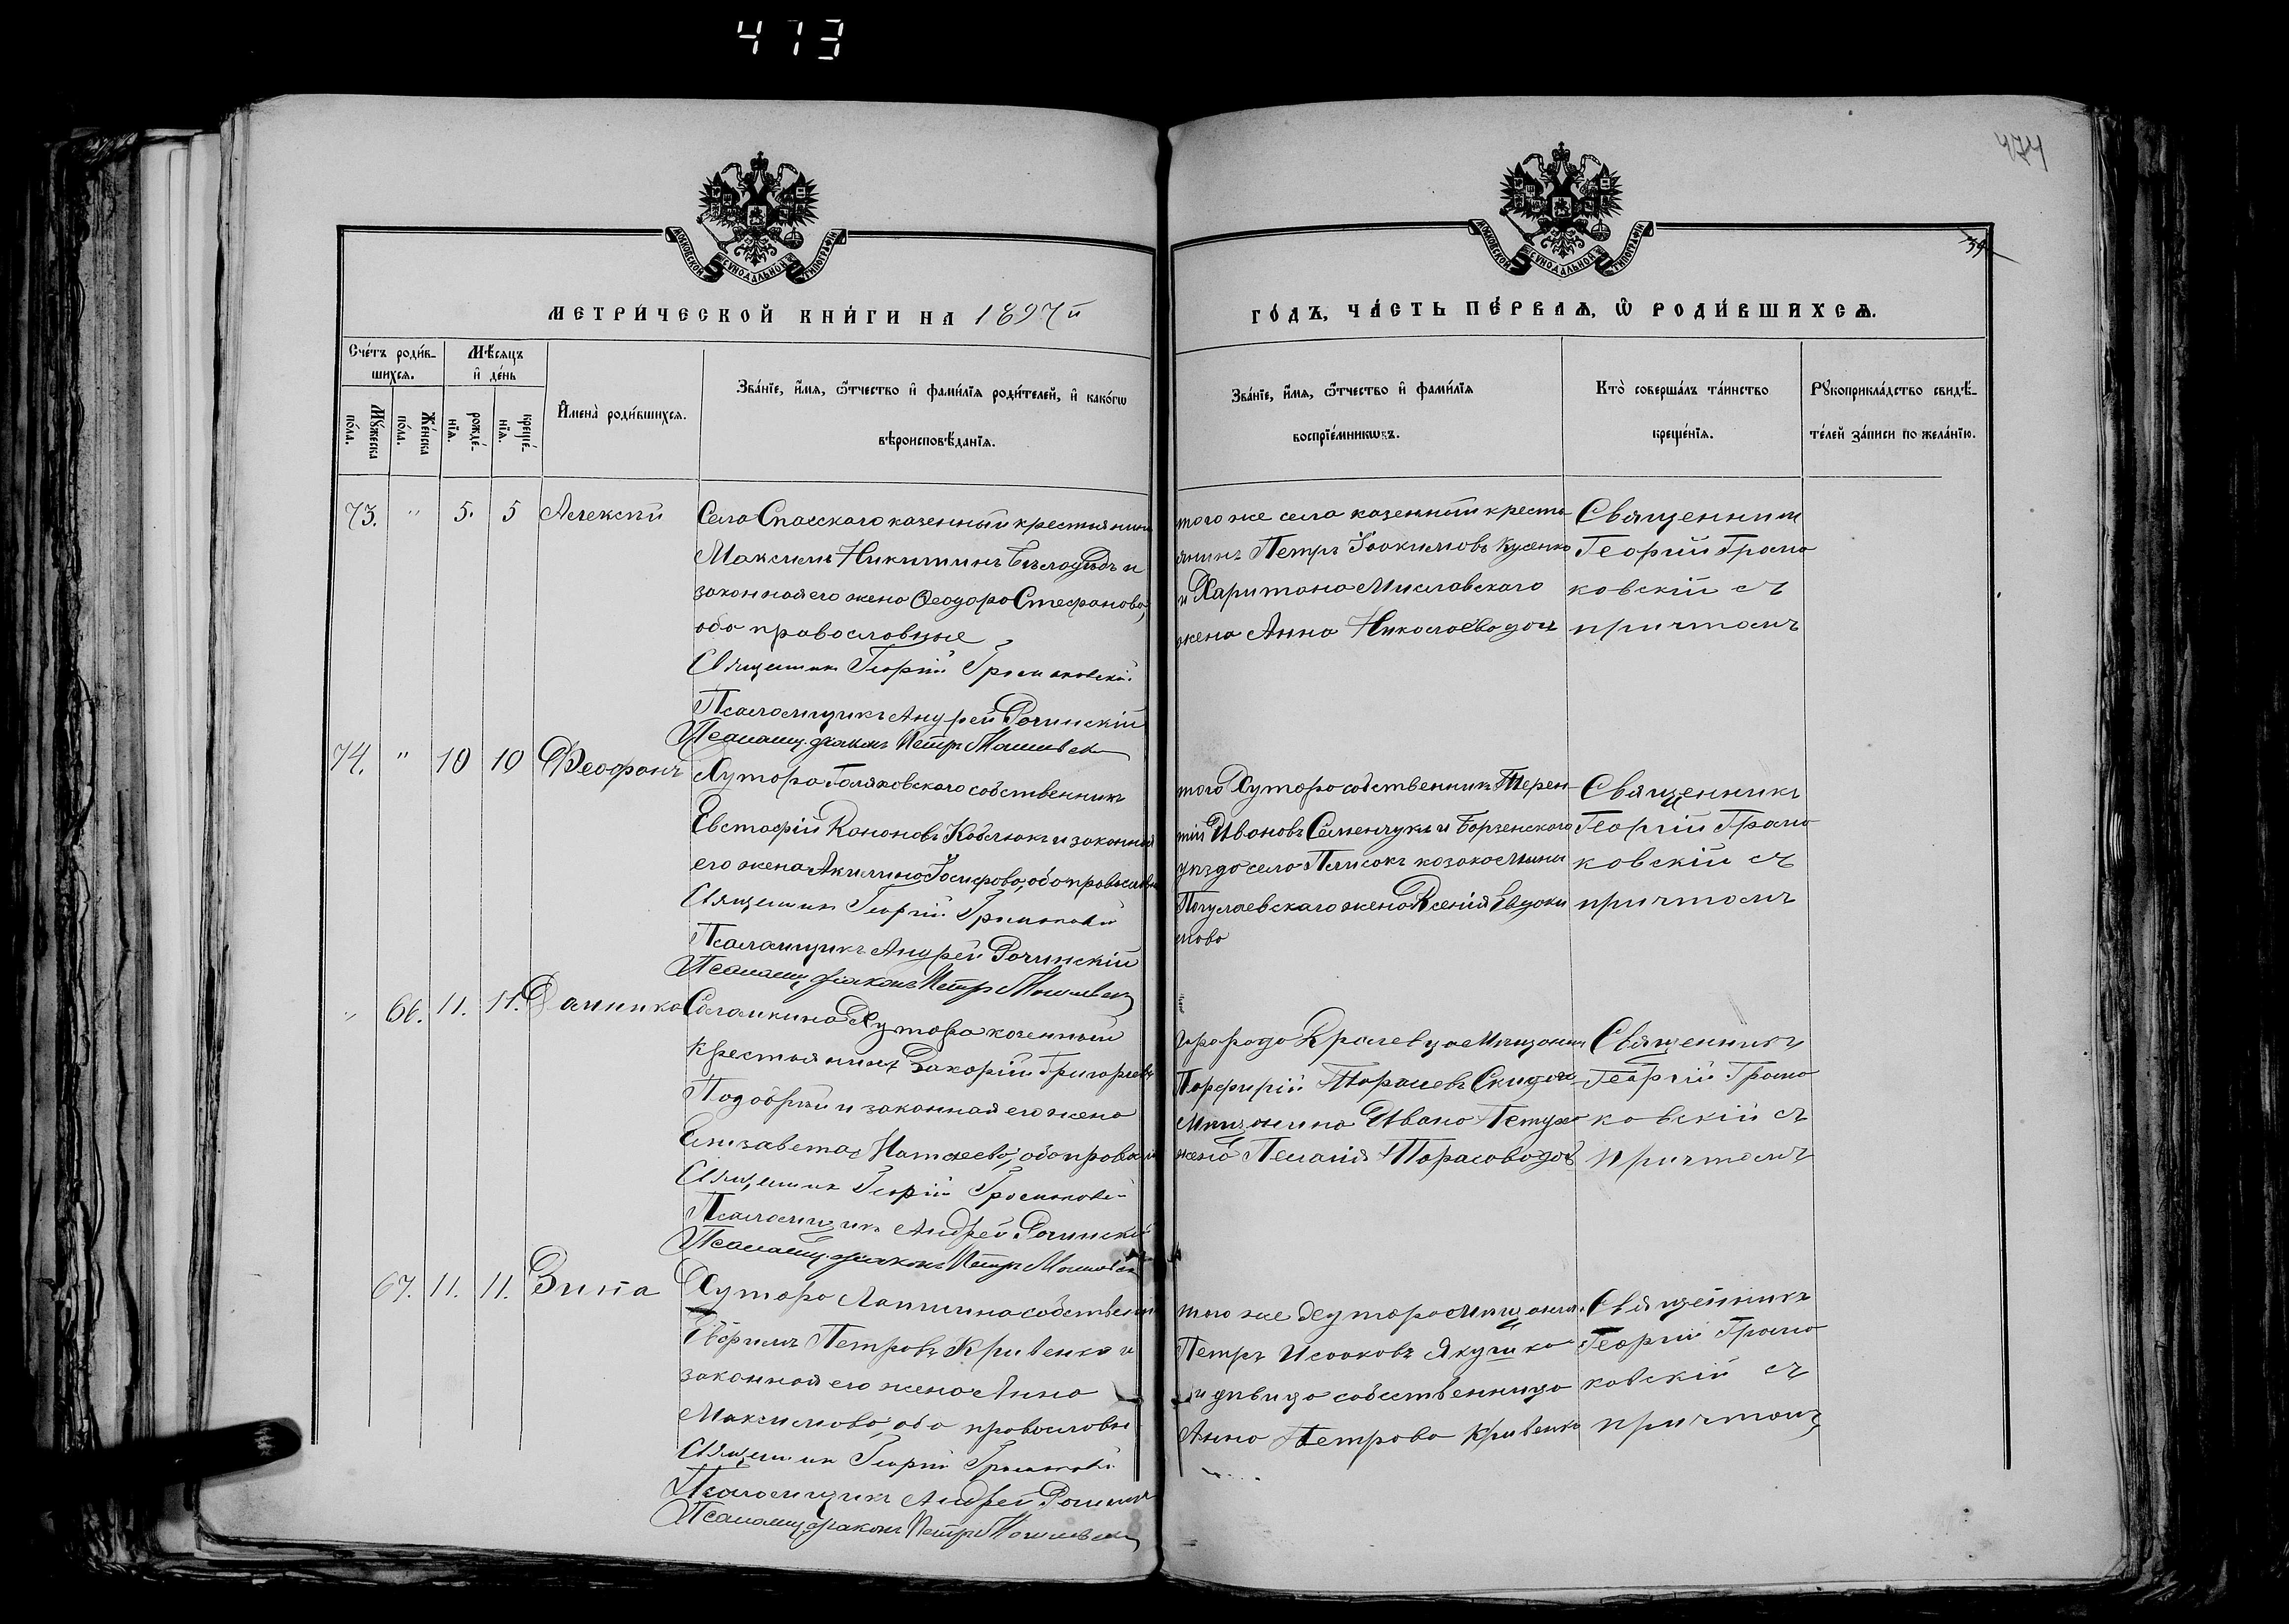 473
474
34
МОСКОВСКОЙ СѴНОДАЛЬНОЙ ТИПОГРАФІИ
МОСКОВСКОЙ СѴНОДАЛЬНОЙ ТИПОГРАФІИ
МЕТРИ́ЧЕСКОЙ КНИ́ГИ НА 1897й
ГО́ДЪ, ЧА́СТЬ ПЕ́РВАѦ, Ѡ҆ РОДИ́ВШИХСѦ.
Сче́тъ роди́в-
шихсѧ.
Му́жеска по́ла.
Же́нска по́ла.
Мѣ́сѧцъ
и҆ де́нь
рожде́-
нїѧ.
креще́-
нїѧ.
И҆мена̀ роди́вшихсѧ.
Зва́нїе, и҆́мѧ, ѻ҆́тчество и҆ фами́лїѧ роди́телей, и҆ како́гѡ
вѣроисповѣ́данїѧ.
Зва́нїе, и҆́мѧ, ѻ҆́тчество и҆ фами́лїѧ
воспрїе́мникѡвъ.
Кто̀ соверша́лъ та́инство
креще́нїѧ.
Рꙋкоприкла́дство свидѣ́-
телей за́писи по жела́нїю.
73. " 5. 5 Алексѣй
Села Спасскаго казенный крестьянинъ
Максимъ Никитинъ Бѣлодѣдъ и
законная его жена Ѳеодора Стефанова,
оба православные
Священник Георгій Громаковскій
Псаломщикъ Андрей Рочинскій
Псаломщ. діаконъ Петръ
того же села казенный кресть
янинъ Петръ Іоакимовъ Кусенко
и Харитона Миславскаго
жена Анна Николаева дочь
Священникъ
Георгій Грома
ковскій съ
причтомъ
74. " 10 10 Ѳеофанъ
Хутора собственникъ
Евстафій Кононовъ Кобелюкъ и законная
его жена Акилина Іосифова, оба православн
Священник Георгій Громаковскій
Псаломщикъ Андрей Рочинскій
Псаломщ. діаконъ Петръ
того Хутора собственникъ Терен
тій Ивановъ Семенчукъ и Борзенскаго
уѣзда села Плисокъ козака Мины
жена Ксенія Евдоки
мова
Священникъ
Георгій Грома
ковскій съ
причтомъ
" 66. 11. 11. Домника
Хутора казенный
крестьянинъ Захарій Григорьевъ
Подобрій и законная его жена
Елизавета Матѳеева, оба правосл
Священник Георгій Громаковскій
Псаломщикъ Андрей Рочинскій
Псаломщ. діаконъ Петръ
города Кролевца мѣщанин
Порфирій Тарасовъ
мѣщанина Ивана Петухо
жена Пелагія Тарасова дочь
Священникъ
Георгій Грома
ковскій съ
причтомъ
67. 11. 11. Зина
Хутора Лапшина собственн
Ефримъ Петровъ Кривенко и
законная его жена Анна
Максимова, оба православн
Священник Георгій Громаковскій
Псаломщикъ Андрей Рочинскій
Псаломщ. діаконъ Петръ
того же Хутора мѣщанин
Петръ Исааковъ Якушко
и дѣвица собственница
Анна Петрова Кривенко
Священникъ
Георгій Грома
ковскій съ
причтомъ